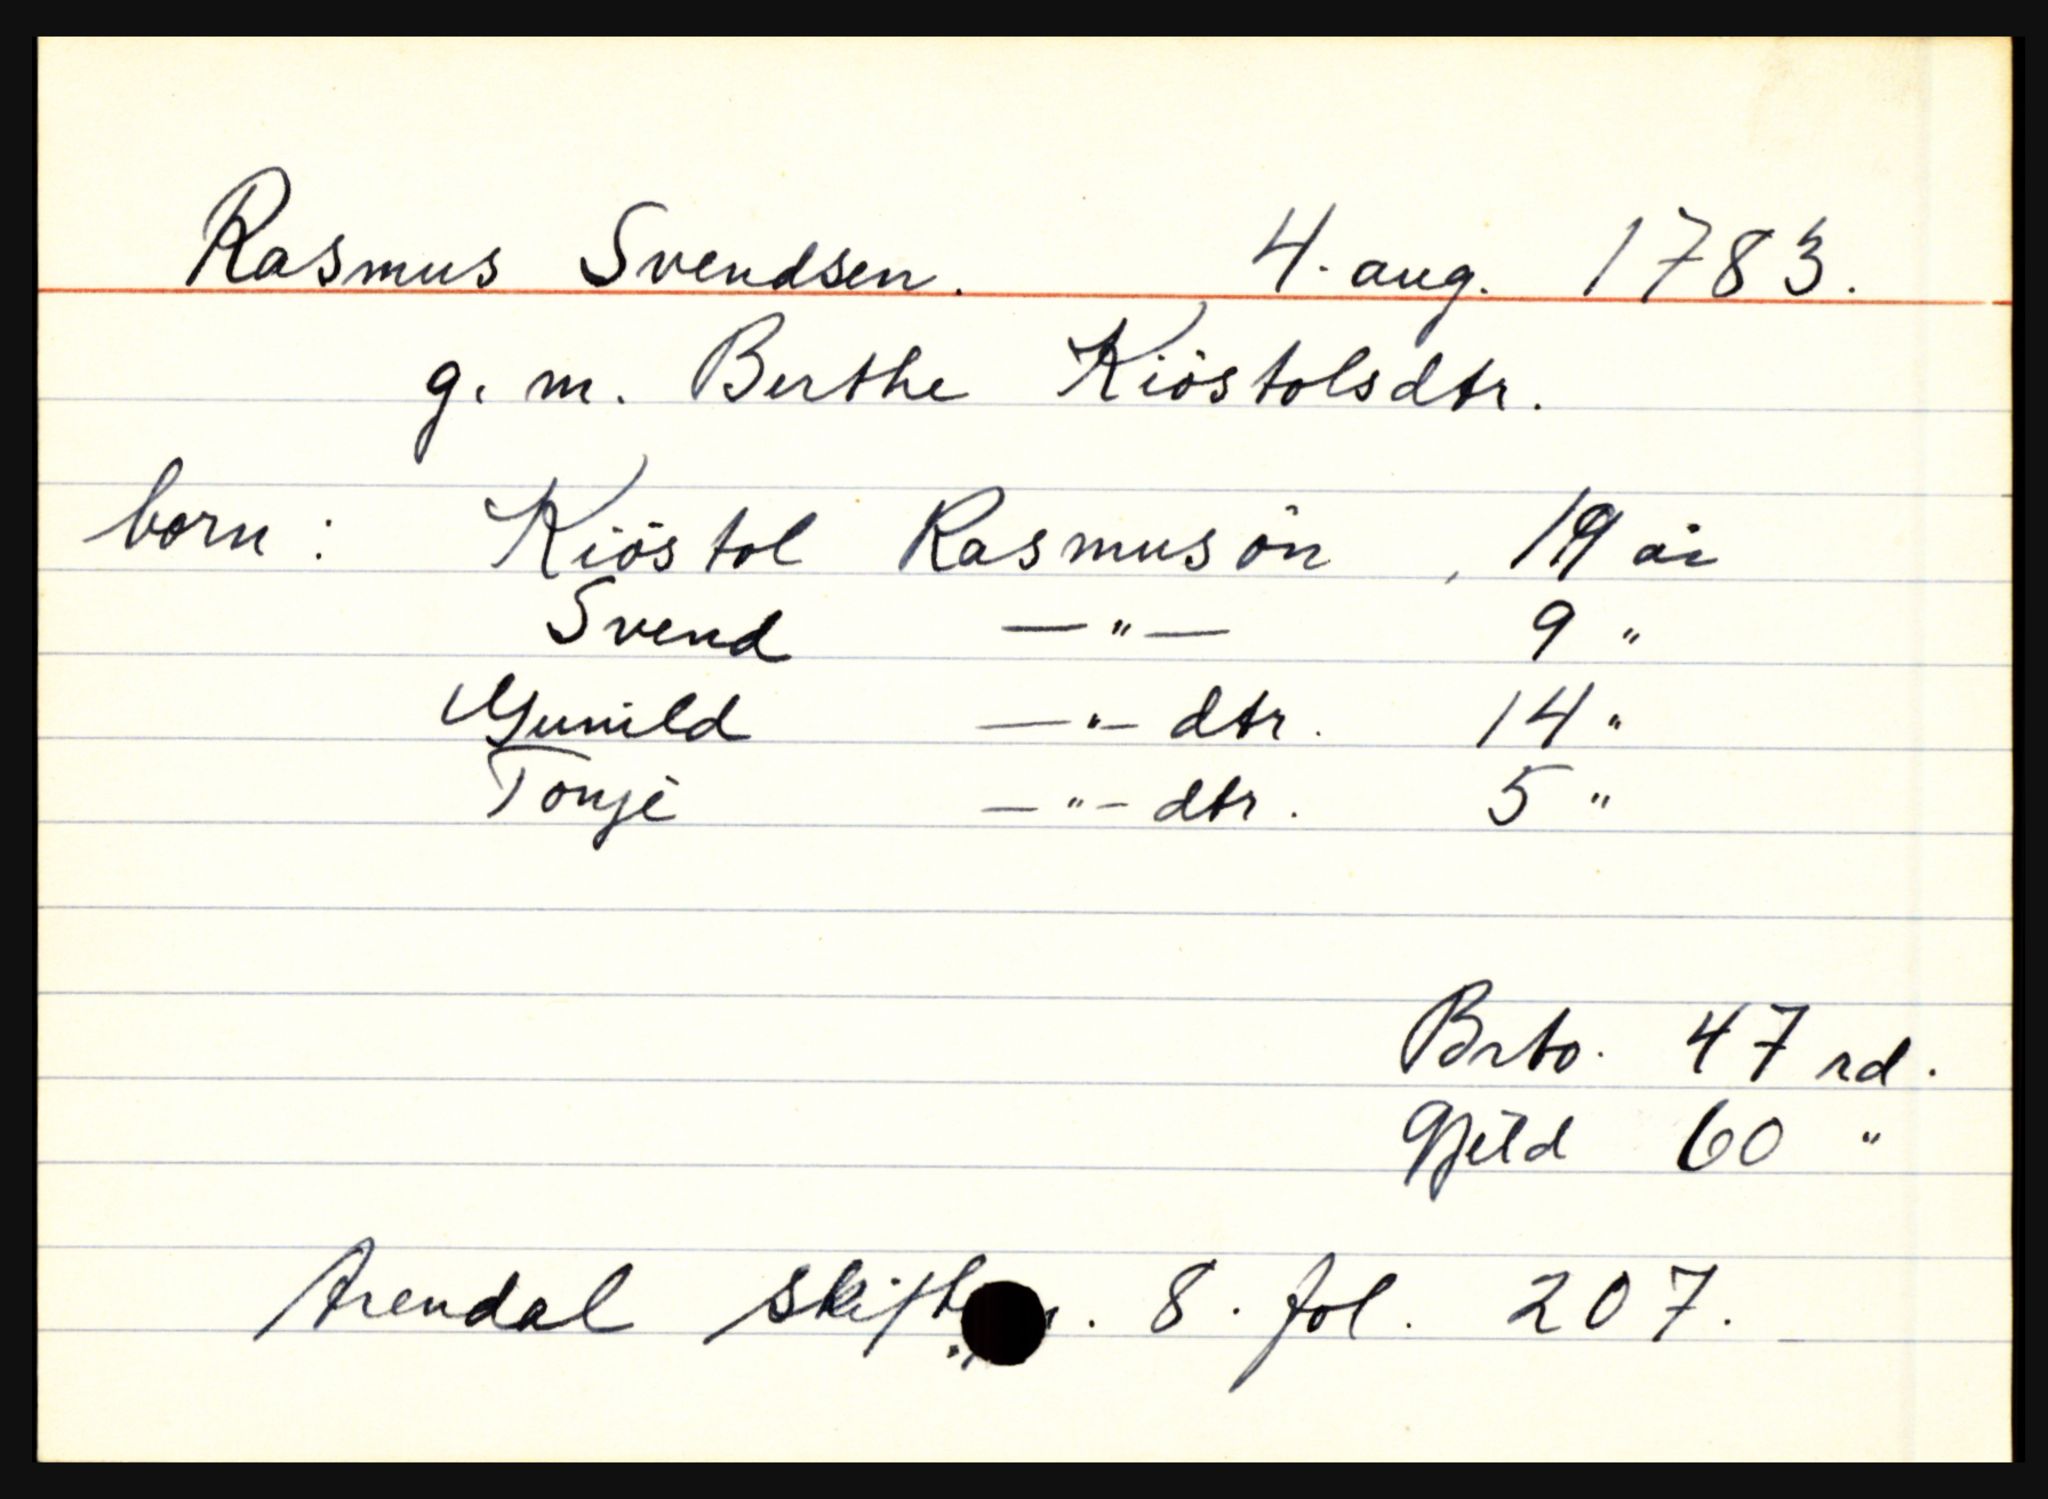 Rasmus Svendsen. 4. aug. 1783.
g. m. Berthe Kiöstolsdtr.
born: Kiöstol Rasmusön, 19 år
Svend —"— 9 "
Gunild —"— dtr. 14 "
Tonje —"— dtr. 5 "
Brto. 47 rd.
Gjeld 60 "
Arendal 8. fol. 207.